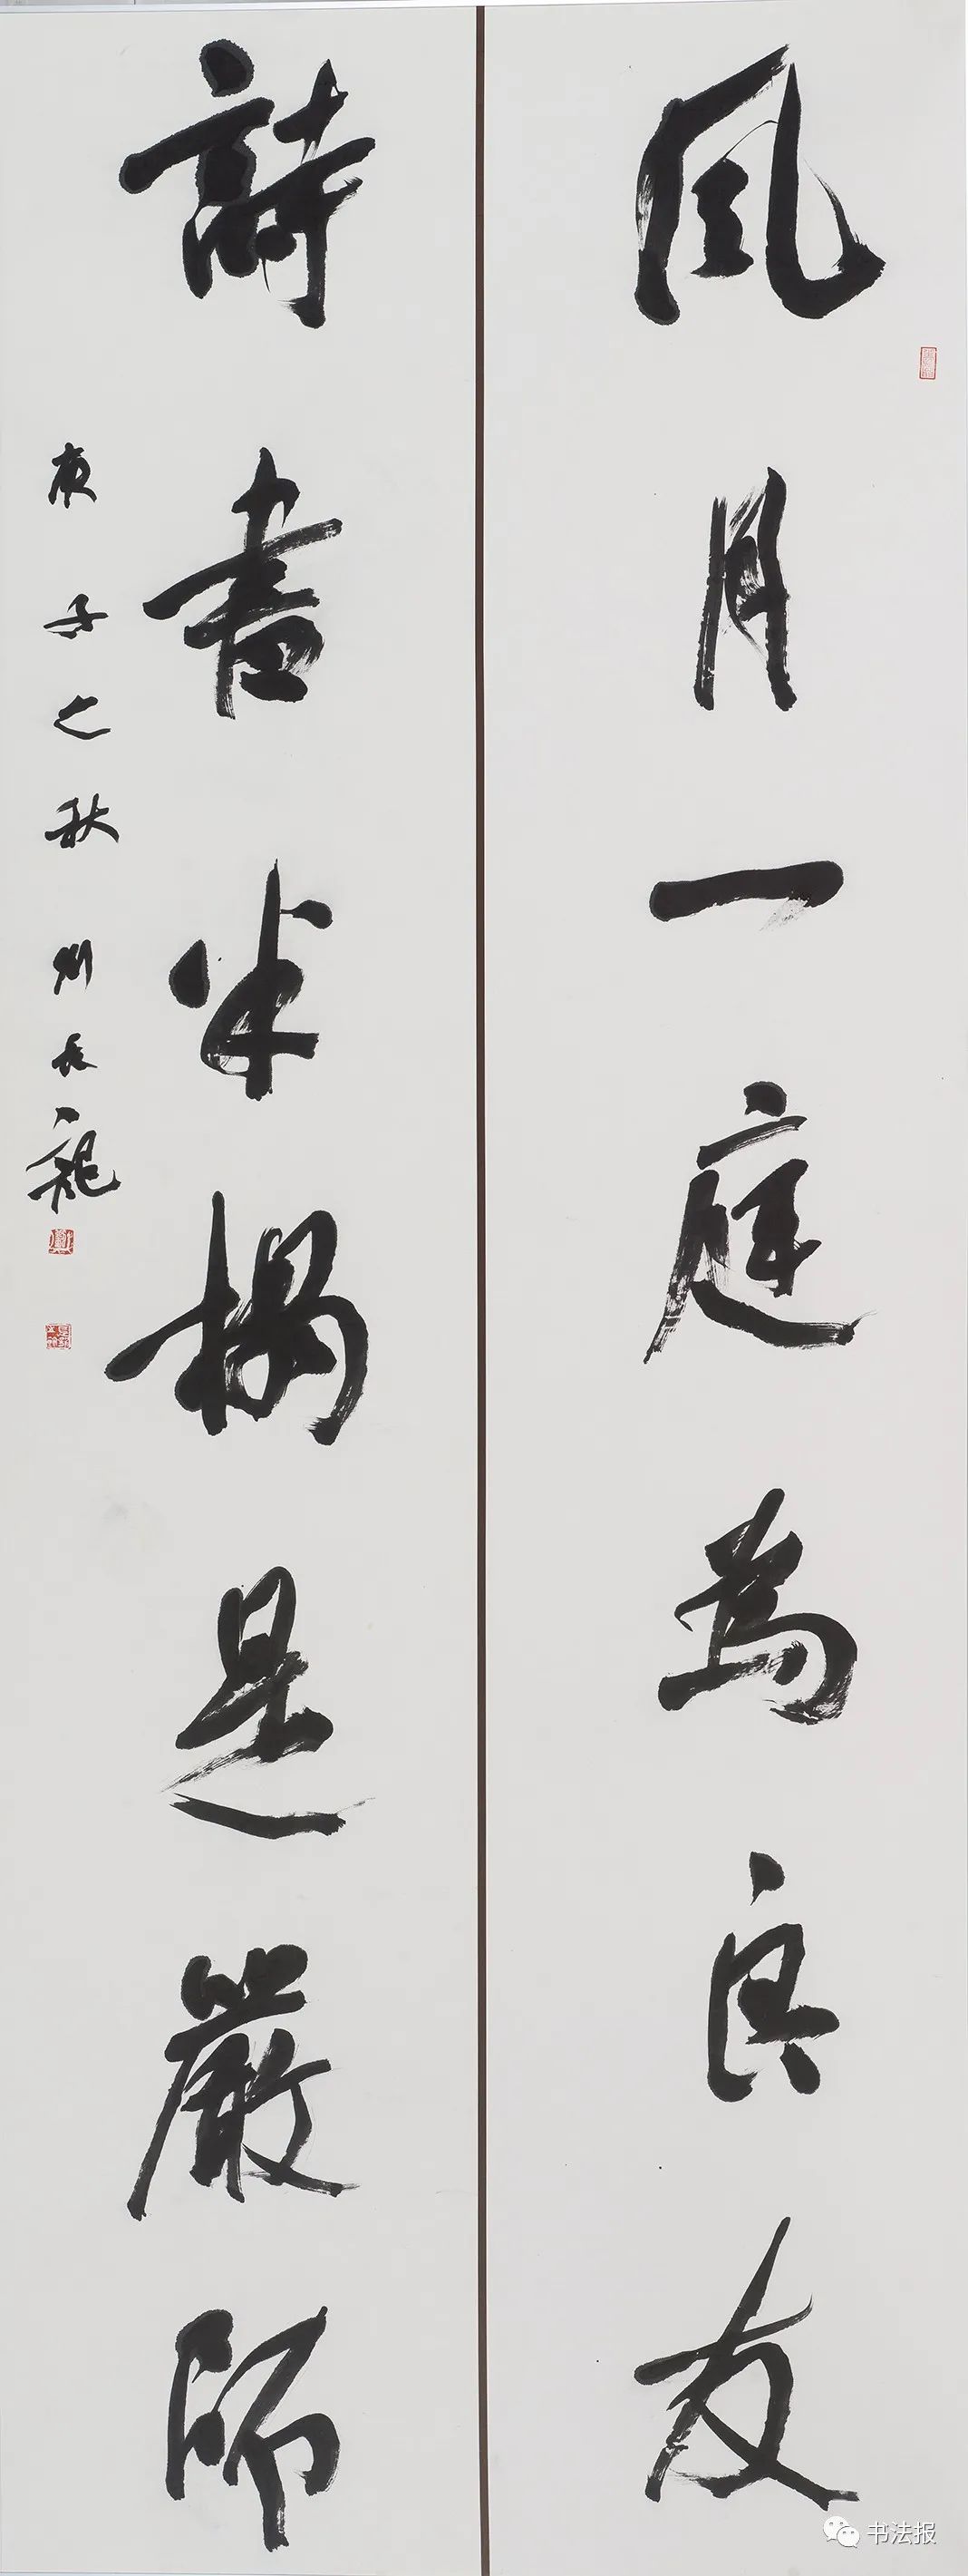 風月一庭為良友
詩書半榻是嚴師
庚子之秋 劉永龍
书法报